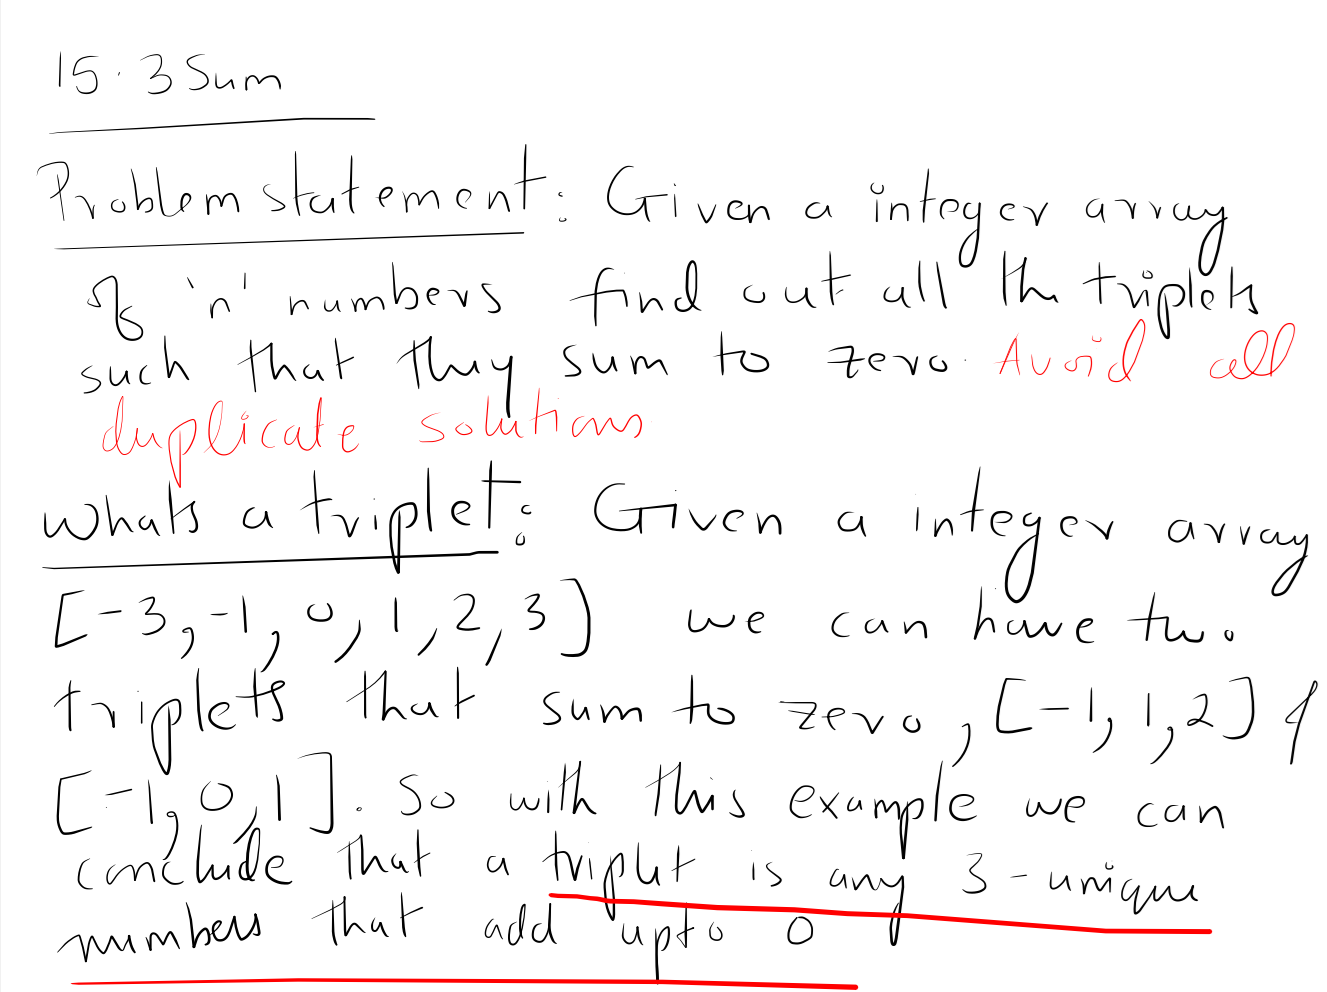 15. 3Sum
Problem statement: Given a integer array
of 'n' numbers find out all the triplets
such that they sum to zero. Avoid all
duplicate solutions
Whats a triplet: Given a integer array
[-3, -1, 0, 1, 2, 3] we can have two
triplets that sum to zero, [-1, 1, 2] &
[-1, 0, 1]. So with this example we can
conclude that a triplet is any 3-unique
numbers that add upto 0